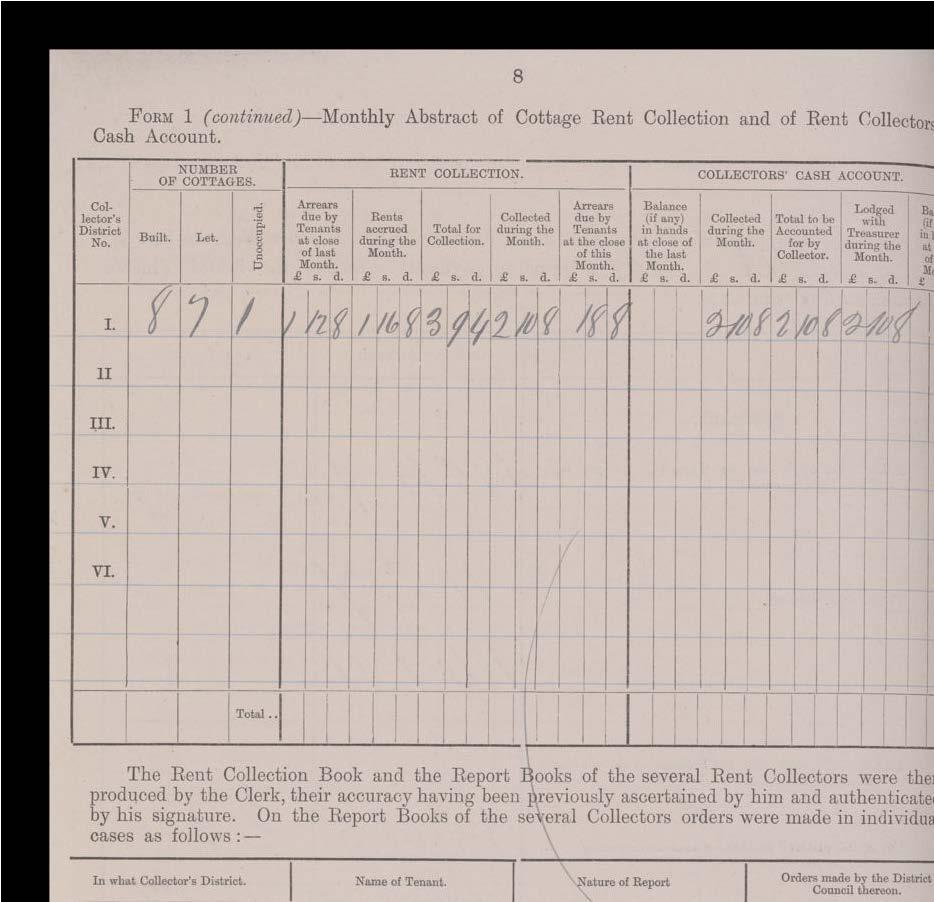 8
FORM 1 (continued)—Monthly Abstract of Cottage Rent Collection and of Rent Collectors
Cash Account.
NUMBER OF COTTAGES. RENT COLLECTION. COLLECTORS' CASH ACCOUNT.
Collector's District No. Built. Let. Unoccupied. Arrears due by Tenants at close of last Month. Rents accrued during the Month. Total for Collection. Collected during the Month. Arrears due by Tenants at the close of this Month. Balance (if any) in hands at close of the last Month. Collected during the Month. Total to be Accounted for by Collector. Lodged with Treasurer during the Month.
£ s. d. £ s. d. £ s. d. £ s. d. £ s. d. £ s. d. £ s. d. £ s. d. £ s. d. £
I. 8 7 1 1 12 8 1 16 8 3 9 4 2 10 8 18 8 2 10 8 2 10 8 2 10 8
II
III.
IV.
V.
VI.
Total ..
The Rent Collection Book and the Report Books of the several Rent Collectors were then
produced by the Clerk, their accuracy having been previously ascertained by him and authenticate
by his signature. On the Report Books of the several Collectors orders were made in individua
cases as follows :—
In what Collector's District. Name of Tenant. Nature of Report Orders made by the District Council thereon.